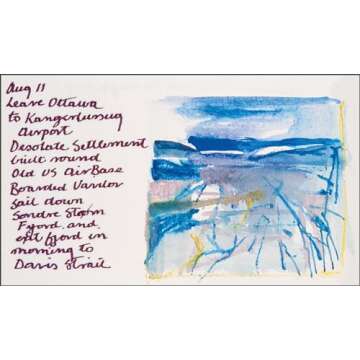 Aug 11
Leave Ottawa
to Kangerlussuq
Airport
Desolate Settlement
built round
Old US AirBase
Boarded Vavilov
sail down
Sondre Strom
Fjord and
exit fjord in
morning to
Davis Strait